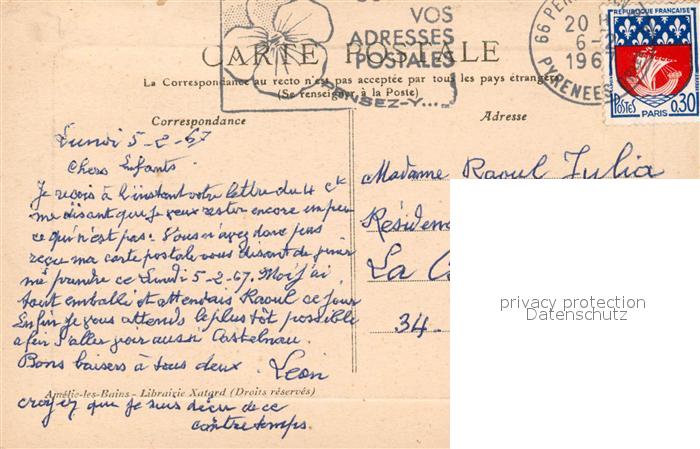 VOS
ADRESSES
POSTALES
PENSEZ-Y...
66 PER
20 H
6-2
196
PYRENEES
REPUBLIQUE FRANÇAISE
POSTES
0,30
PARIS
CARTE POSTALE
La Correspondance au recto n'est pas acceptée par tous les pays étrangers
(Se renseigner à la Poste)
Correspondance
Adresse
Lundi 5-2-67
Chers Enfants
Je reçois à l'instant votre lettre du 4 ct
me disant que je veux rester encore un peu
ce qui n'est pas. Vous n'avez donc pas
reçu ma carte postale vous disant de venir
me prendre ce Lundi 5-2-67. Moi j'ai
tout emballé et attendais Raoul ce jour
Enfin je vous attends le plus tôt possible
afin d'aller voir aussi Castelnau.
Bons baisers à tous deux. Leon
Amélie-les-Bains - Librairie Xatard (Droits réservés)
croyez que je suis déçu de ce
contretemps
Madame Raoul Julia
Résiden
La C
34-
privacy protection
Datenschutz